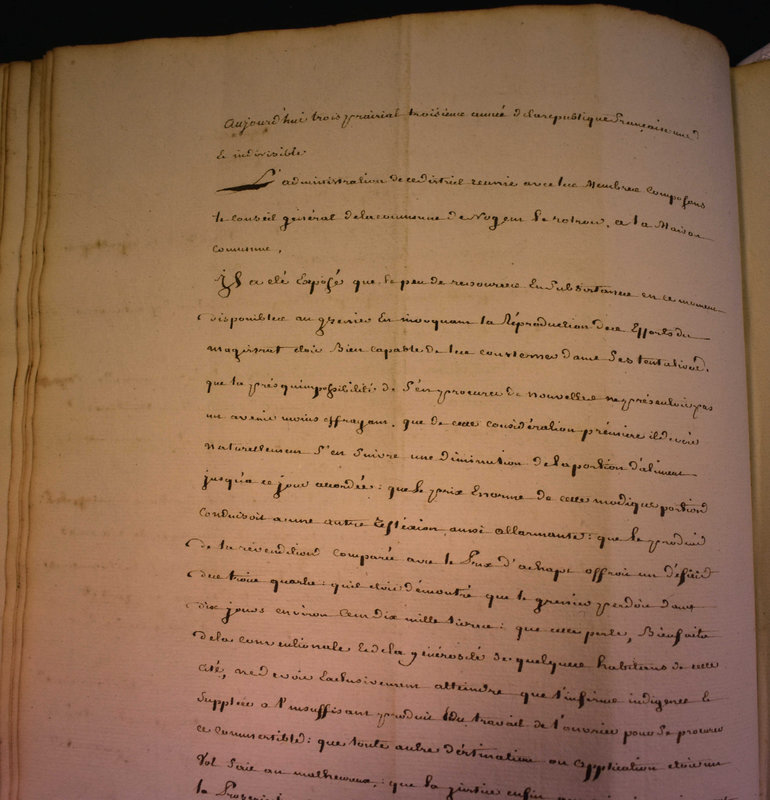 Aujourd'hui trois prairial troisieme année de la republique française une
et indivisible
L'administration de ce district reunie avec les Membres Composans
le Conseil général de la commune de Nogent le rotrou, a la Maison
commune,
Il a été Exposé que le peu de ressources En Subsistances en ce moment
disponibles au grenier En marquant la Réproduction des Efforts du
magistrat étoit Bien capable de les consterner dans Ses tentatives,
que la presqu'impossibilité de S'en procurer de nouvelles ne présentoit pas
un avenir moins effrayant, que de cette considération prémière il devoit
Naturellement S'en Suivre une diminution de la portion d'aliment
jusqu'a ce jour accordée : que le prix Enorme de cette modique portion
Conduisoit a une autre Réfléxion aussi allarmante : que le produit
de la révendition comparée avec le Prix d'achapt offroit un déficit
des trois quarts : qu'il étoit démontré que le grenier perdoit dans
dix jours environ Cent dix mille livres : que cette perte, Bienfait
de la et de la générosité de quelques habitans de cette
cité, ne devoit Exclusivement atteindre que l'infirme indigence et
Suppléer a l'insuffisant produit du travail de l'ouvrier pour Se procurer
ce comestible : que toute autre déstination ou application étoit un
Vol fait au malheureux, : que la justice enfin